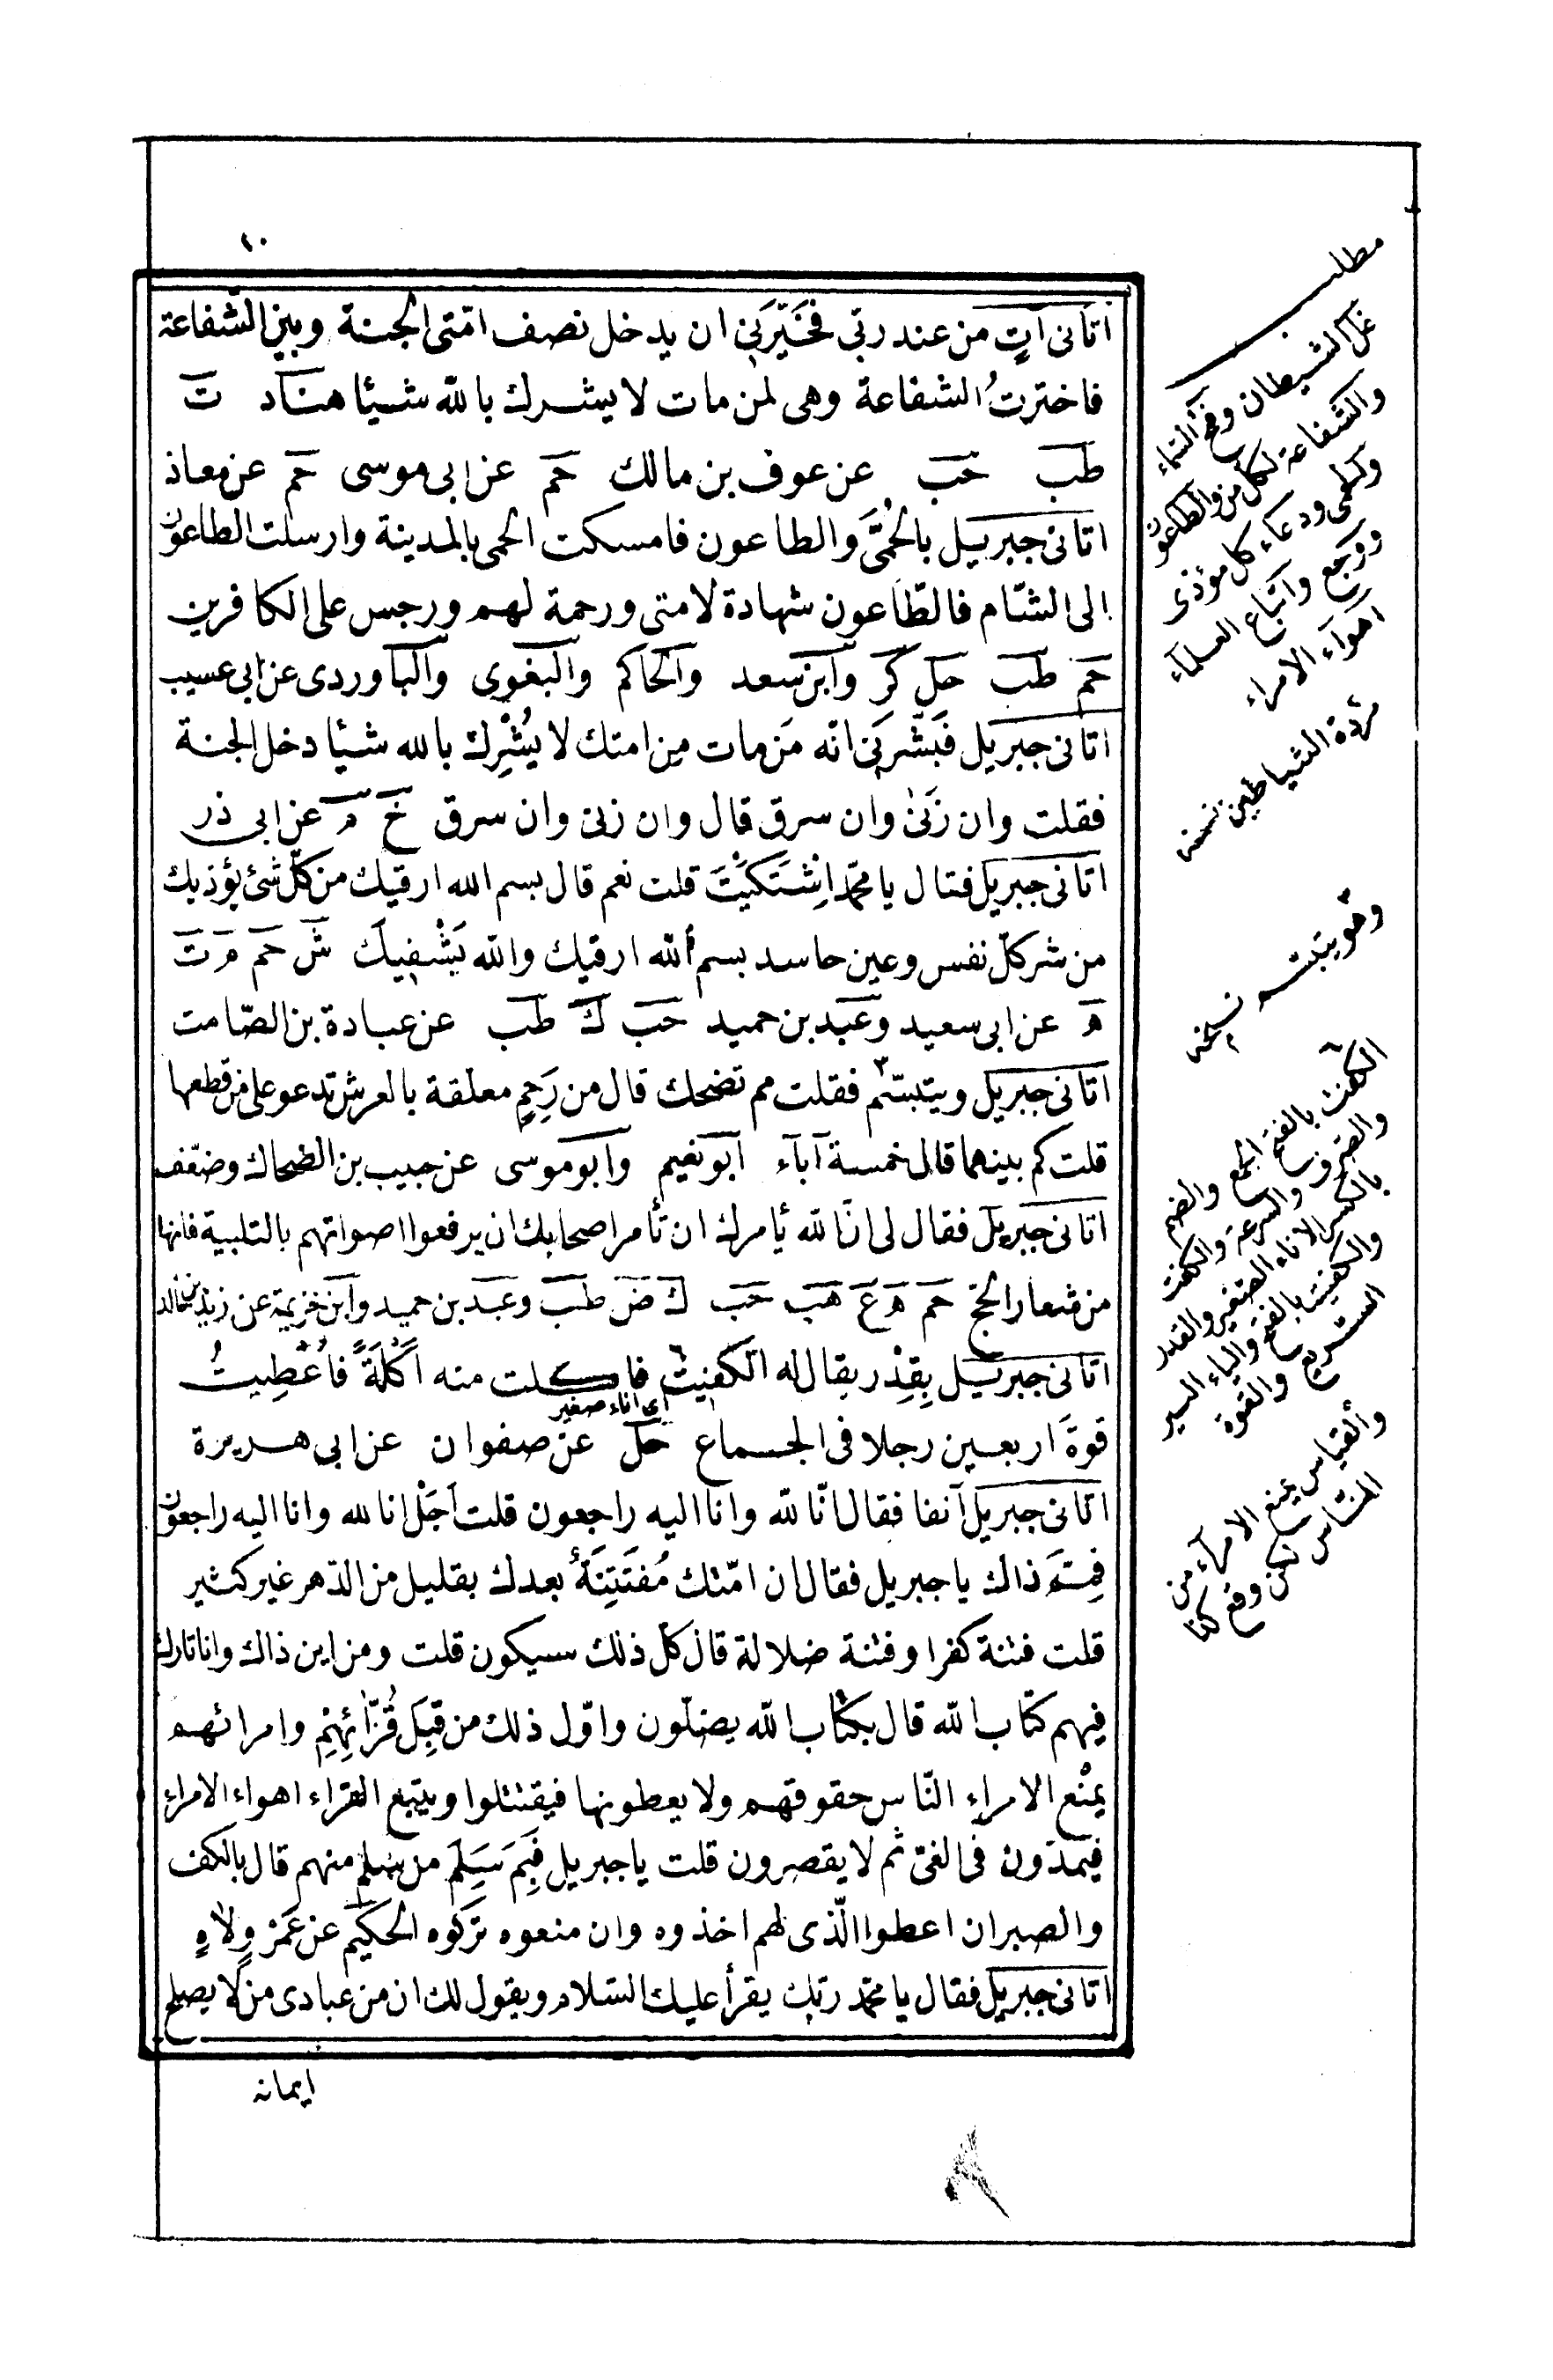 ١٠
اتانى آتٍ من عند ربّى فَخَيَّرَنِى ان يدخل نصف امّتى الجنة وبين الشّفاعة
فاخترتُ الشفاعة وهى لمن مات لا يشرك بالله شيئا هناد ت
طب حب عن عوف بن مالك حم عن ابى موسى حم عن معاذ
اتانى جبريل بالحُمَّى والطاعون فامسكت الحمى بالمدينة وارسلت الطاعون
الى الشّام فالطّاعون شهادة لامتى ورحمة لهم ورجس على الكافرين
حم طب حل كر وابن سعد والحاكم والبغوى والباوردى عن ابى عسيب
اتانى جبريل فَبَشَّرَنِى انّه مَن مات من امتك لا يُشْرِك بالله شيئا دخل الجنة
فقلت وان زَنَى وان سرق قال وان زنى وان سرق خ م عن ابى ذر
اتانى جبريل فقال يا محمّد اِشْتَكَيْتَ قلت نعم قال بسم الله ارقيك من كلّ شئ يؤذيك
من شر كلّ نفس وعين حاسد بسم الله ارقيك والله يَشْفِيكَ ش حم م ت
ه عن ابى سعيد وعبد بن حميد حب ك طب عن عبادة بن الصّامت
اتانى جبريل ويتبسّم فقلت مم تضحك قال من رَحِمٍ معلقة بالعرش تدعو على من قطعها
قلت كم بينهما قال خمسة آباء ابو نعيم وابو موسى عن حبيب بن الضحاك وضعّف
اتانى جبريل فقال لى انّ الله يأمرك ان تأمر اصحابك ان يرفعوا اصواتهم بالتلبية فانها
من شعار الحجّ حم ه ع هب حب ك ض طب وعبد بن حميد وابن خزيمة عن زيد بن خالد
اتانى جبريل بِقِدْر يقال له الكفيت فاكلت منه اَكْلَةً فاُعْطِيتُ
اى اناء صغير
قوةَ اربعين رجلا فى الجماع حل عن صفوان عن ابى هريرة
اتانى جبريل آنفا فقال انّا لله وانا اليه راجعون قلت اَجَلْ انا لله وانا اليه راجعون
فِمَّ ذاك يا جبريل فقال ان امّتك مُفتَتِنَةٌ بعدك بقليل من الدّهر غير كثير
قلت فتنة كفر او فتنة ضلالة قال كلّ ذلك سيكون قلت ومن اين ذاك وانا تارك
فيهم كتاب الله قال بكتاب الله يضلّون واوّل ذلك من قِبَل قُرَّائِهِمْ وامرائهم
يمنع الامراء النّاس حقوقهم ولا يعطونها فيقتتلوا ويتبع القراء اهواء الامراء
فيمدّون فى الغىّ ثم لا يقصرون قلت يا جبريل فَبِمَ سَلِمَ من سلم منهم قال بالكفّ
والصبر ان اعطوا الّذى لهم اخذوه وان منعوه تركوه الحكيم عن عمر
اتانى جبريل فقال يا محمّد ربّك يقرأ عليك السّلام ويقول لك ان من عبادى من لا يصلح
ايمانه
مطلب
والشفاعة لكل من والطاعون
والحمى ودعاء كل مؤذى
ووجع واتباع العلماء
اهواء الامراء
مردة الشياطين نسخه
وهو يتبسم نسخه
الكفت بالفتح الجمع والضم
والصرف والسرعة والكفت
بالكسر الاناء الصغير والقدر
والكفيت بالفتح والياء السير
السريع والقوة
والقياس يمنع الامراء من
الناس لكن وقع كذا